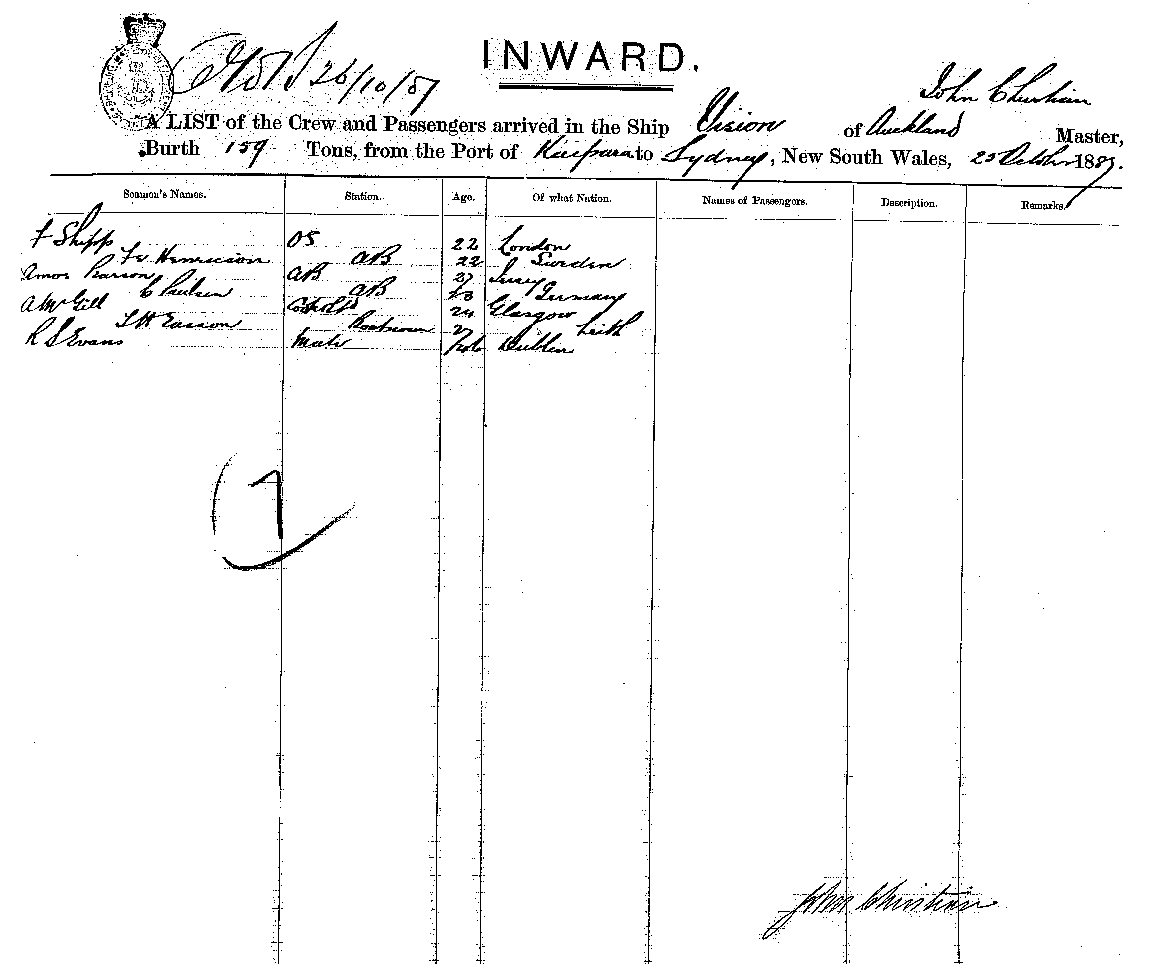 INWARD.
26/10/87
John Christian
A LIST of the Crew and Passengers arrived in the Ship Vision of Auckland Master,
Burth 159 Tons, from the Port of Kaipara to Sydney, New South Wales, 25 October 1887.
Seamen's Names. Station. Age. Of what Nation. Names of Passengers. Description. Remarks.
F Shipp OS 22 London
Henricson AB 22 Sweden
Amos Pearson AB 27 Jersey
C Paulsen AB Germany
A McGill 24 Glasgow
Easson Boatswain 27 Leith
R S Evans Mate Dublin
7
John Christian